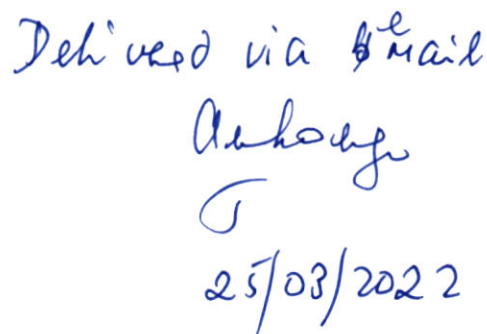 Delivered via email
25/03/2022